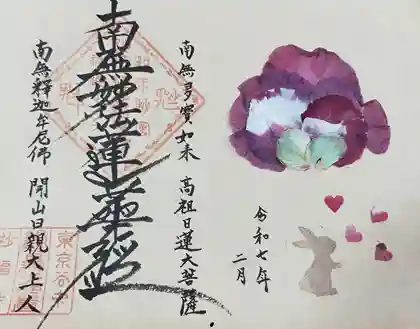 令和七年
二月
南無多寶如来 高祖日蓮大菩薩
南無妙法蓮華経
南無釋迦牟尼佛 開山日親大上人
東京谷中